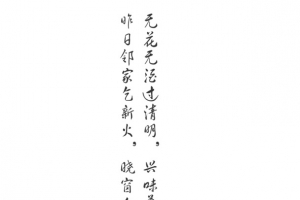 无花无酒过清明，兴味
昨日邻家乞新火，晓窗